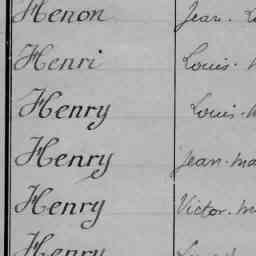 Henon Jean-
Henri Louis-
Henry Louis-
Henry Jean-Ma
Henry Victor-M
Henry